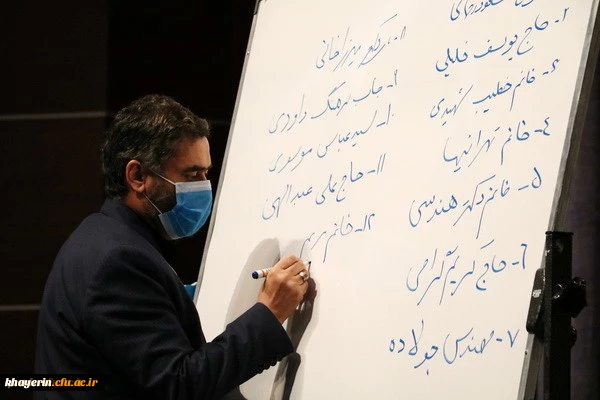 ۲- حاج یوسف خلیلی
۳- خانم خطیب شهیدی
۴- خانم تهرانیها
۵- خانم دکتر هندسی
۶- حاج کریم گرامی
۷- مهندس جولاده
۸- میرزاخانی
۹- جناب داودی
۱۰- سید عباس موسوی
۱۱- حاج علی عبدالهی
۱۲- خانم مریم
khayerin.cfu.ac.ir